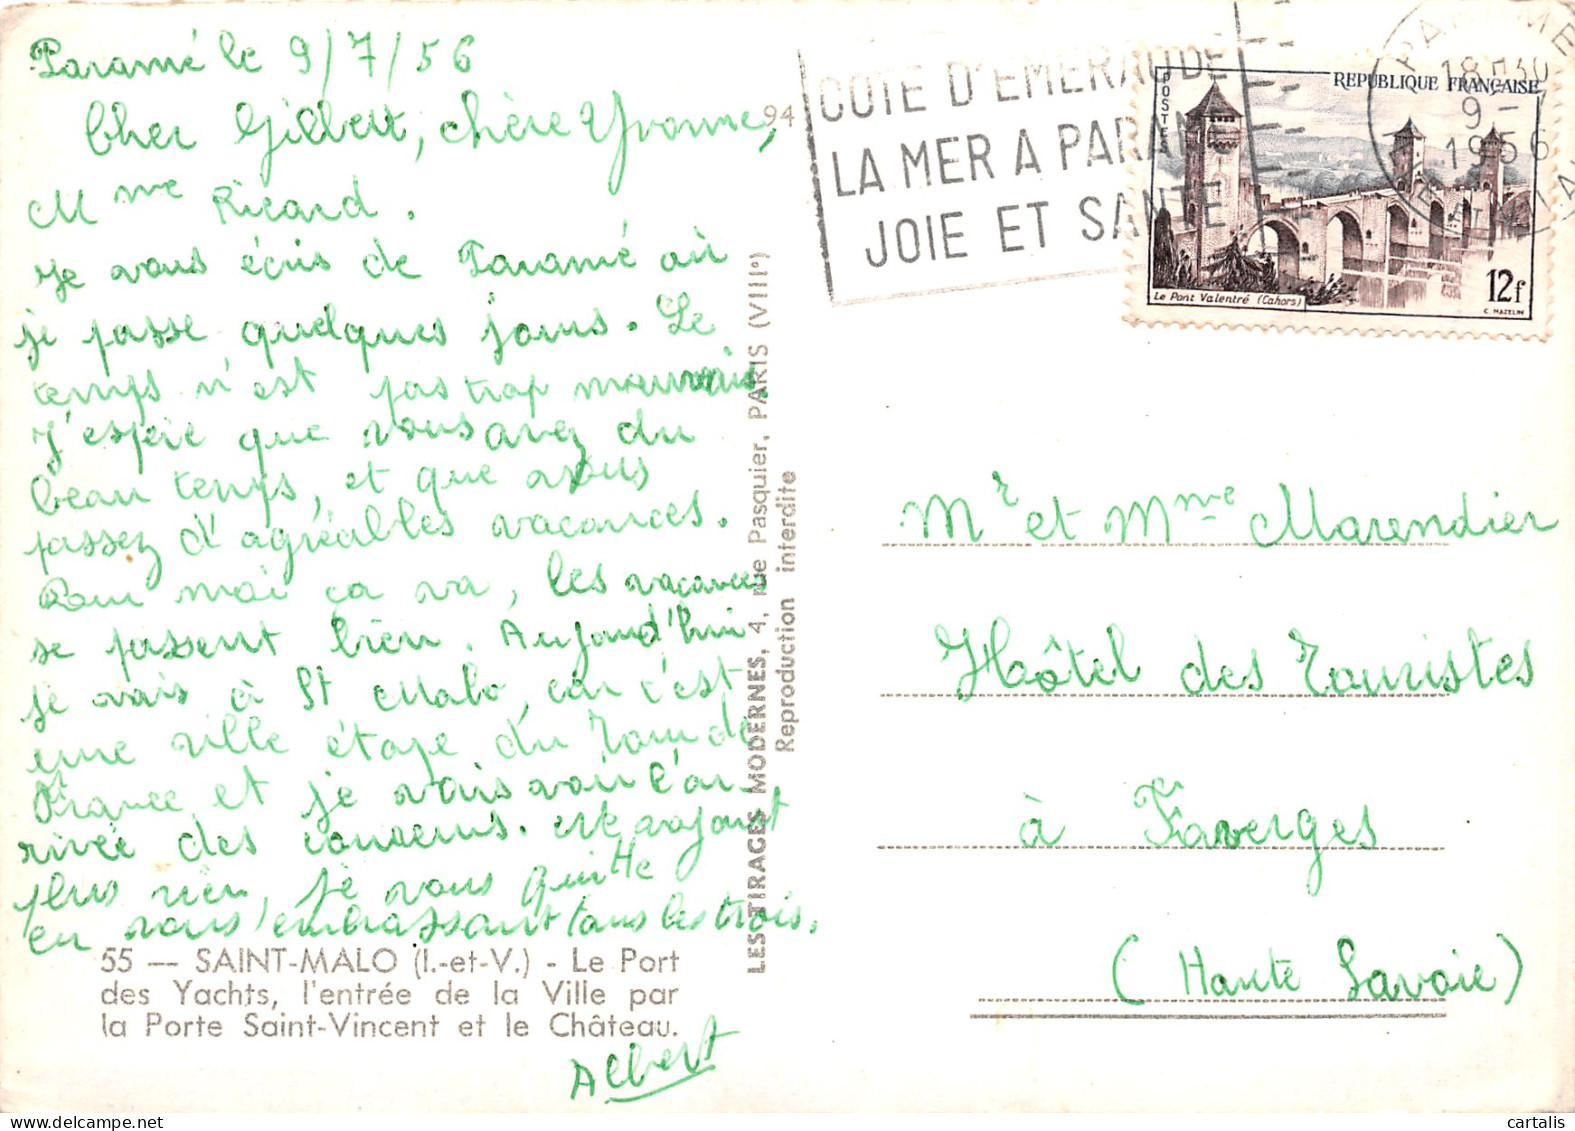 Paramé le 9/7/56
Cher Gilbert, chère Yvonne,
Mme Ricard.
Je vous écris de Paramé où
je passe quelques jours. Le
temps n'est pas trop mauvais,
J'espère que vous avez du
beau temps, et que vous
passez d'agréables vacances.
Pour moi ça va, les vacances
se passent bien. Aujourd'hui
je vais à St Malo, car c'est
une ville étape du Tour de
France et je vais voir l'ar-
rivée des coureurs.
plus rien, je vous quitte
en vous embrassant tous les trois.
55 — SAINT-MALO (I.-et-V.) - Le Port
des Yachts, l'entrée de la Ville par
la Porte Saint-Vincent et le Château.
Albert
94
LES TIRAGES MODERNES, 4, rue Pasquier, PARIS (VIIIe)
Reproduction interdite
COTE D'EMERAUDE
LA MER A PARAME
JOIE ET SANTE
PARAME
18H30
9 - 7
1956
ILLE ET VILAINE
POSTES
REPUBLIQUE FRANÇAISE
Le Pont Valentré (Cahors)
12f
C. MAZELIN
Mr et Mme Marendier
Hôtel des Touristes
à Faverges
(Haute Savoie)
cartalis